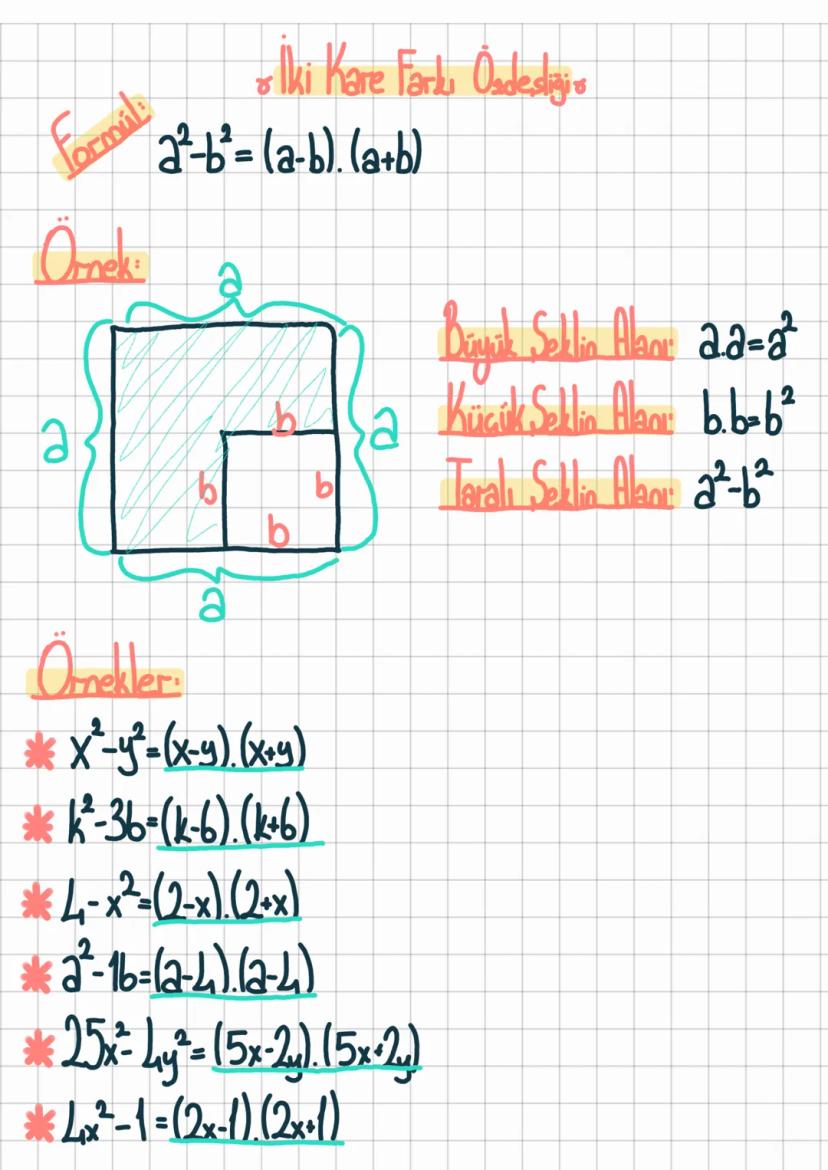 İki Kare Farkı Özdeşliği
Formül:
a²-b²= (a-b).(a+b)
Örnek:
a
a
a
a
b
b
b
b
Büyük Şeklin Alanı: a.a=a²
Küçük Şeklin Alanı: b.b=b²
Taralı Şeklin Alanı: a²-b²
Örnekler:
x²-y²=(x-y).(x+y)
k²-36=(k-6).(k+6)
4-x²=(2-x).(2+x)
a²-16=(a-4).(a-4)
25x²-4y²=(5x-2y).(5x+2y)
4x²-1=(2x-1).(2x+1)